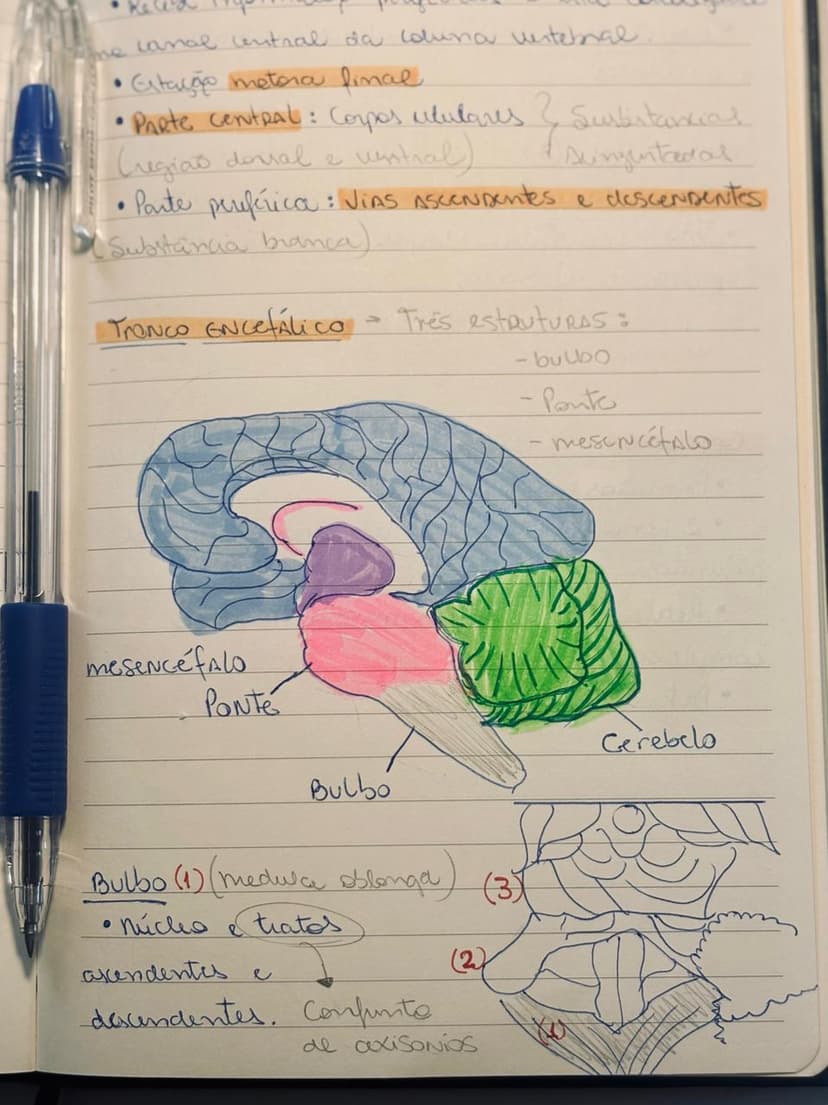 no canal central da coluna vertebral.
• Estação motora final
• PARTE CENTRAL: Corpos celulares } Substâncias
(região dorsal e ventral) acinzentadas
• Parte periférica: VIAS ASCENDENTES e descENDENTES
(Substância branca)
TRONCO ENCEfÁLICO → TRÊS ESTRUTURAS:
- bulbo
- Ponte
- mesencéfalo
mesencéfalo
PONTE
Bulbo
Cerebelo
Bulbo (1) (medula oblonga)
• Núcleo e tratos
ascendentes e
descendentes.
Conjunto
de axisonios
(3)
(2)
(1)